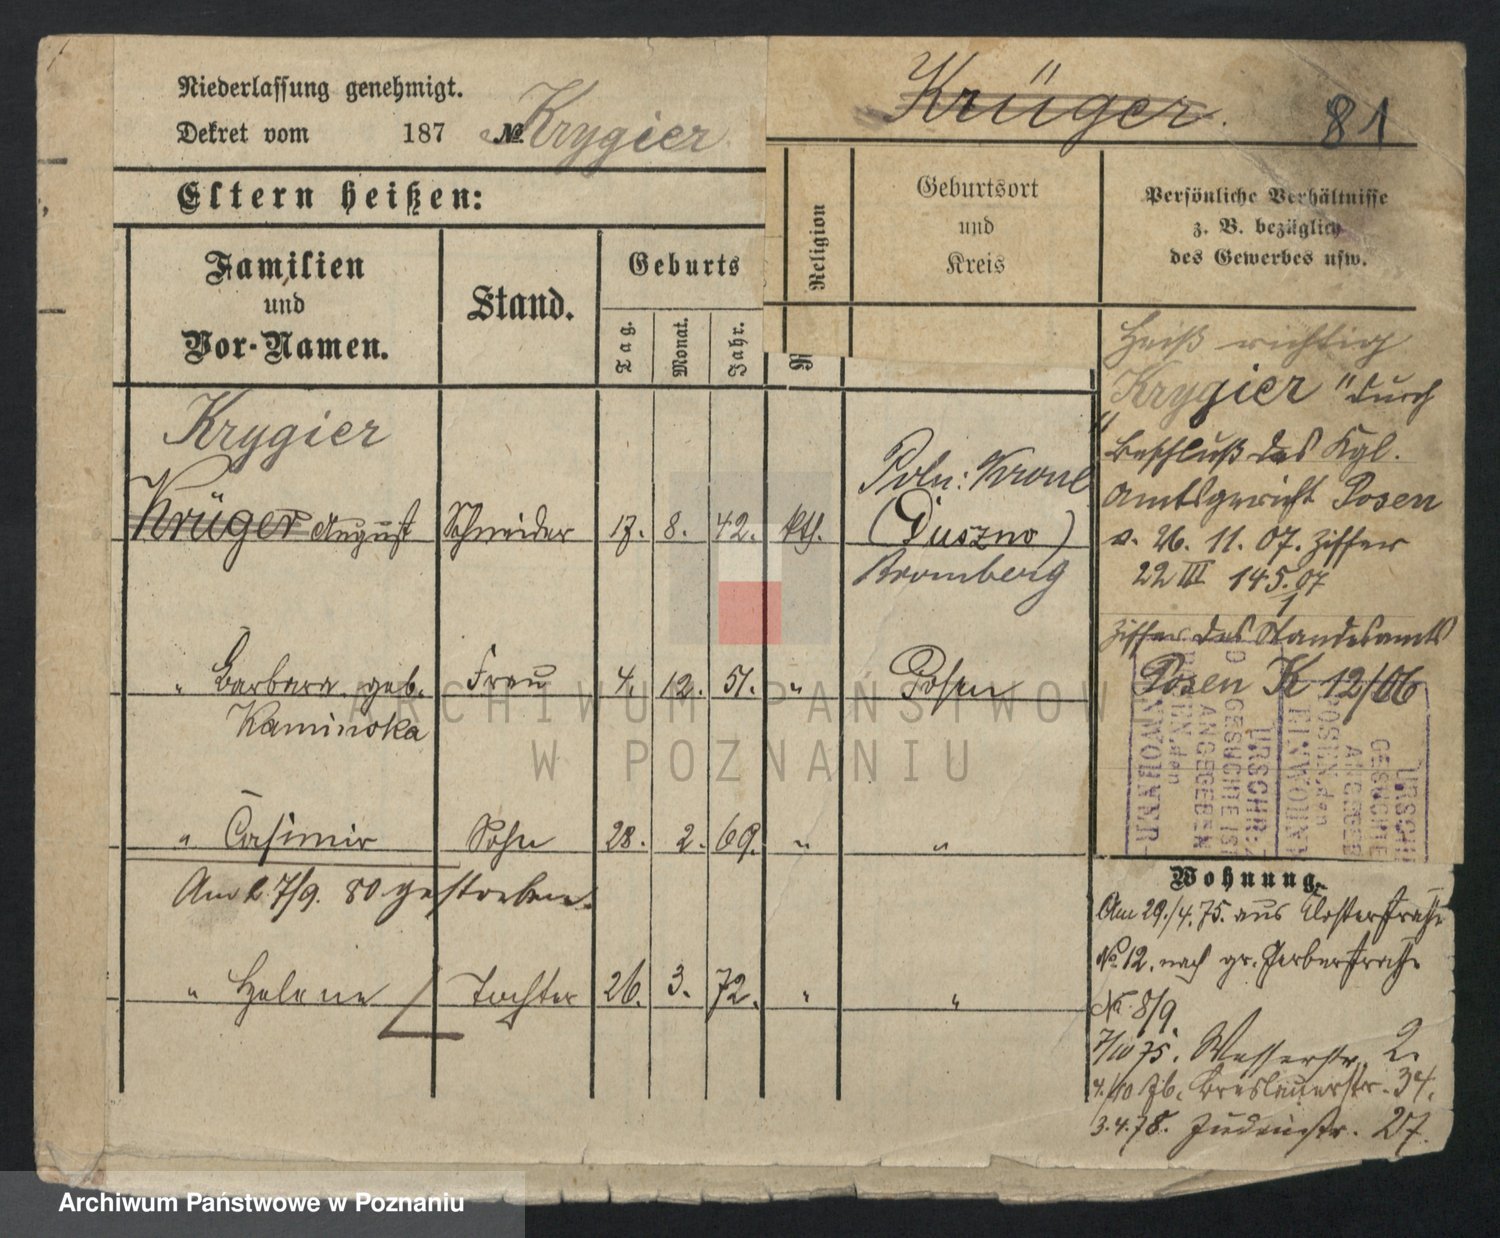 Niederlassung genehmigt.
Dekret vom 187 № Krygier
Krüger.
81
Eltern heißen:
Familien
und
Vor-Namen.
Stand.
Geburts
Tag.
Monat.
Jahr.
Religion
Geburtsort
und
Kreis
Persönliche Verhältnisse
z. B. bezüglich
des Gewerbes usw.
Krygier
Krüger August Schneider 17. 8. 42. kth.
Poln: Krone
(Duszno)
Bromberg
" Barbara geb. Frau 4. 12. 51. " Posen
Kaminska
" Casimir Sohn 28. 2. 69. " "
Am 27/9. 80 gestorben.
" Helene Tochter 26. 3. 72. " "
Heiß richtig
"Krygier" durch
Beschluß des Kgl.
Amtsgericht Posen
v. 26. 11. 07. Ziffer
22 III 145.07
1
Ziffer des Standesamts
Posen K 12/06
GESUCHTE IST
ANGEGEBEN
Wohnung.
Am 29./4. 75. aus Klosterstraße
No 12. nach gr. Gerberstraße
No 8/9
7/10 75. Wasserstr. 2.
4./10 76. Breslauerstr. 34.
3.4.78. Judenstr. 27.
ARCHIWUM PAŃSTWOW
W POZNANIU
Archiwum Państwowe w Poznaniu